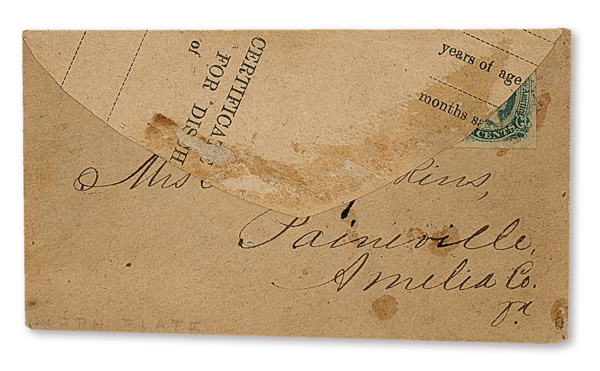 CERTIFICATE
FOR DISCH
of
years of age
months sa
CENTS
Mrs kins,
Paineville,
Amelia Co.
Va